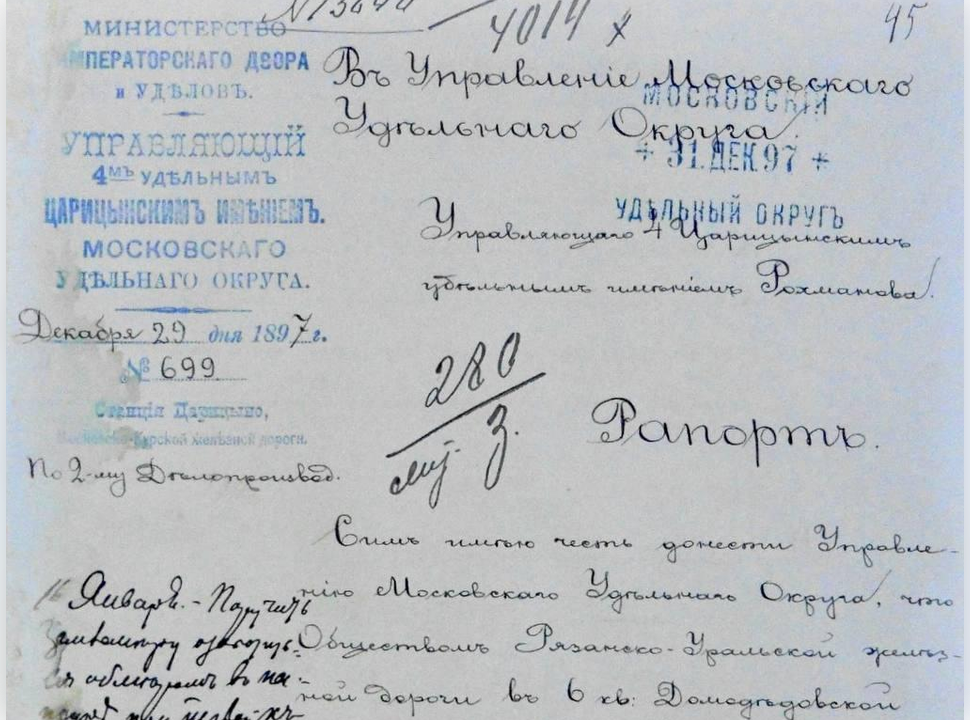 4014
45
МИНИСТЕРСТВО
ИМПЕРАТОРСКАГО ДВОРА
и УДѢЛОВЪ.
УПРАВЛЯЮЩІЙ
4мъ УДѢЛЬНЫМЪ
ЦАРИЦЫНСКИМЪ ИМѢНІЕМЪ.
МОСКОВСКАГО
УДѢЛЬНАГО ОКРУГА.
Декабря 29 дня 1897 г.
№ 699
Станція Царицыно,
Московско-Курской желѣзной дороги.
По 2-му Дѣлопроизвод.
Въ Управленіе Московскаго
Удѣльнаго Округа.
МОСКОВСКІЙ
+ 31. ДЕК 97 +
УДѢЛЬНЫЙ ОКРУГЪ
Управляющаго 4 Царицынскимъ
удѣльнымъ имѣніемъ Рохманова.
280
3.
Рапортъ.
Симъ имѣю честь донести Управле-
нію Московскаго Удѣльнаго Округа, что
Обществомъ Рязанско-Уральской желѣз-
ной дороги въ 6 кв: Домодѣдовской
16 Января. - Поручить